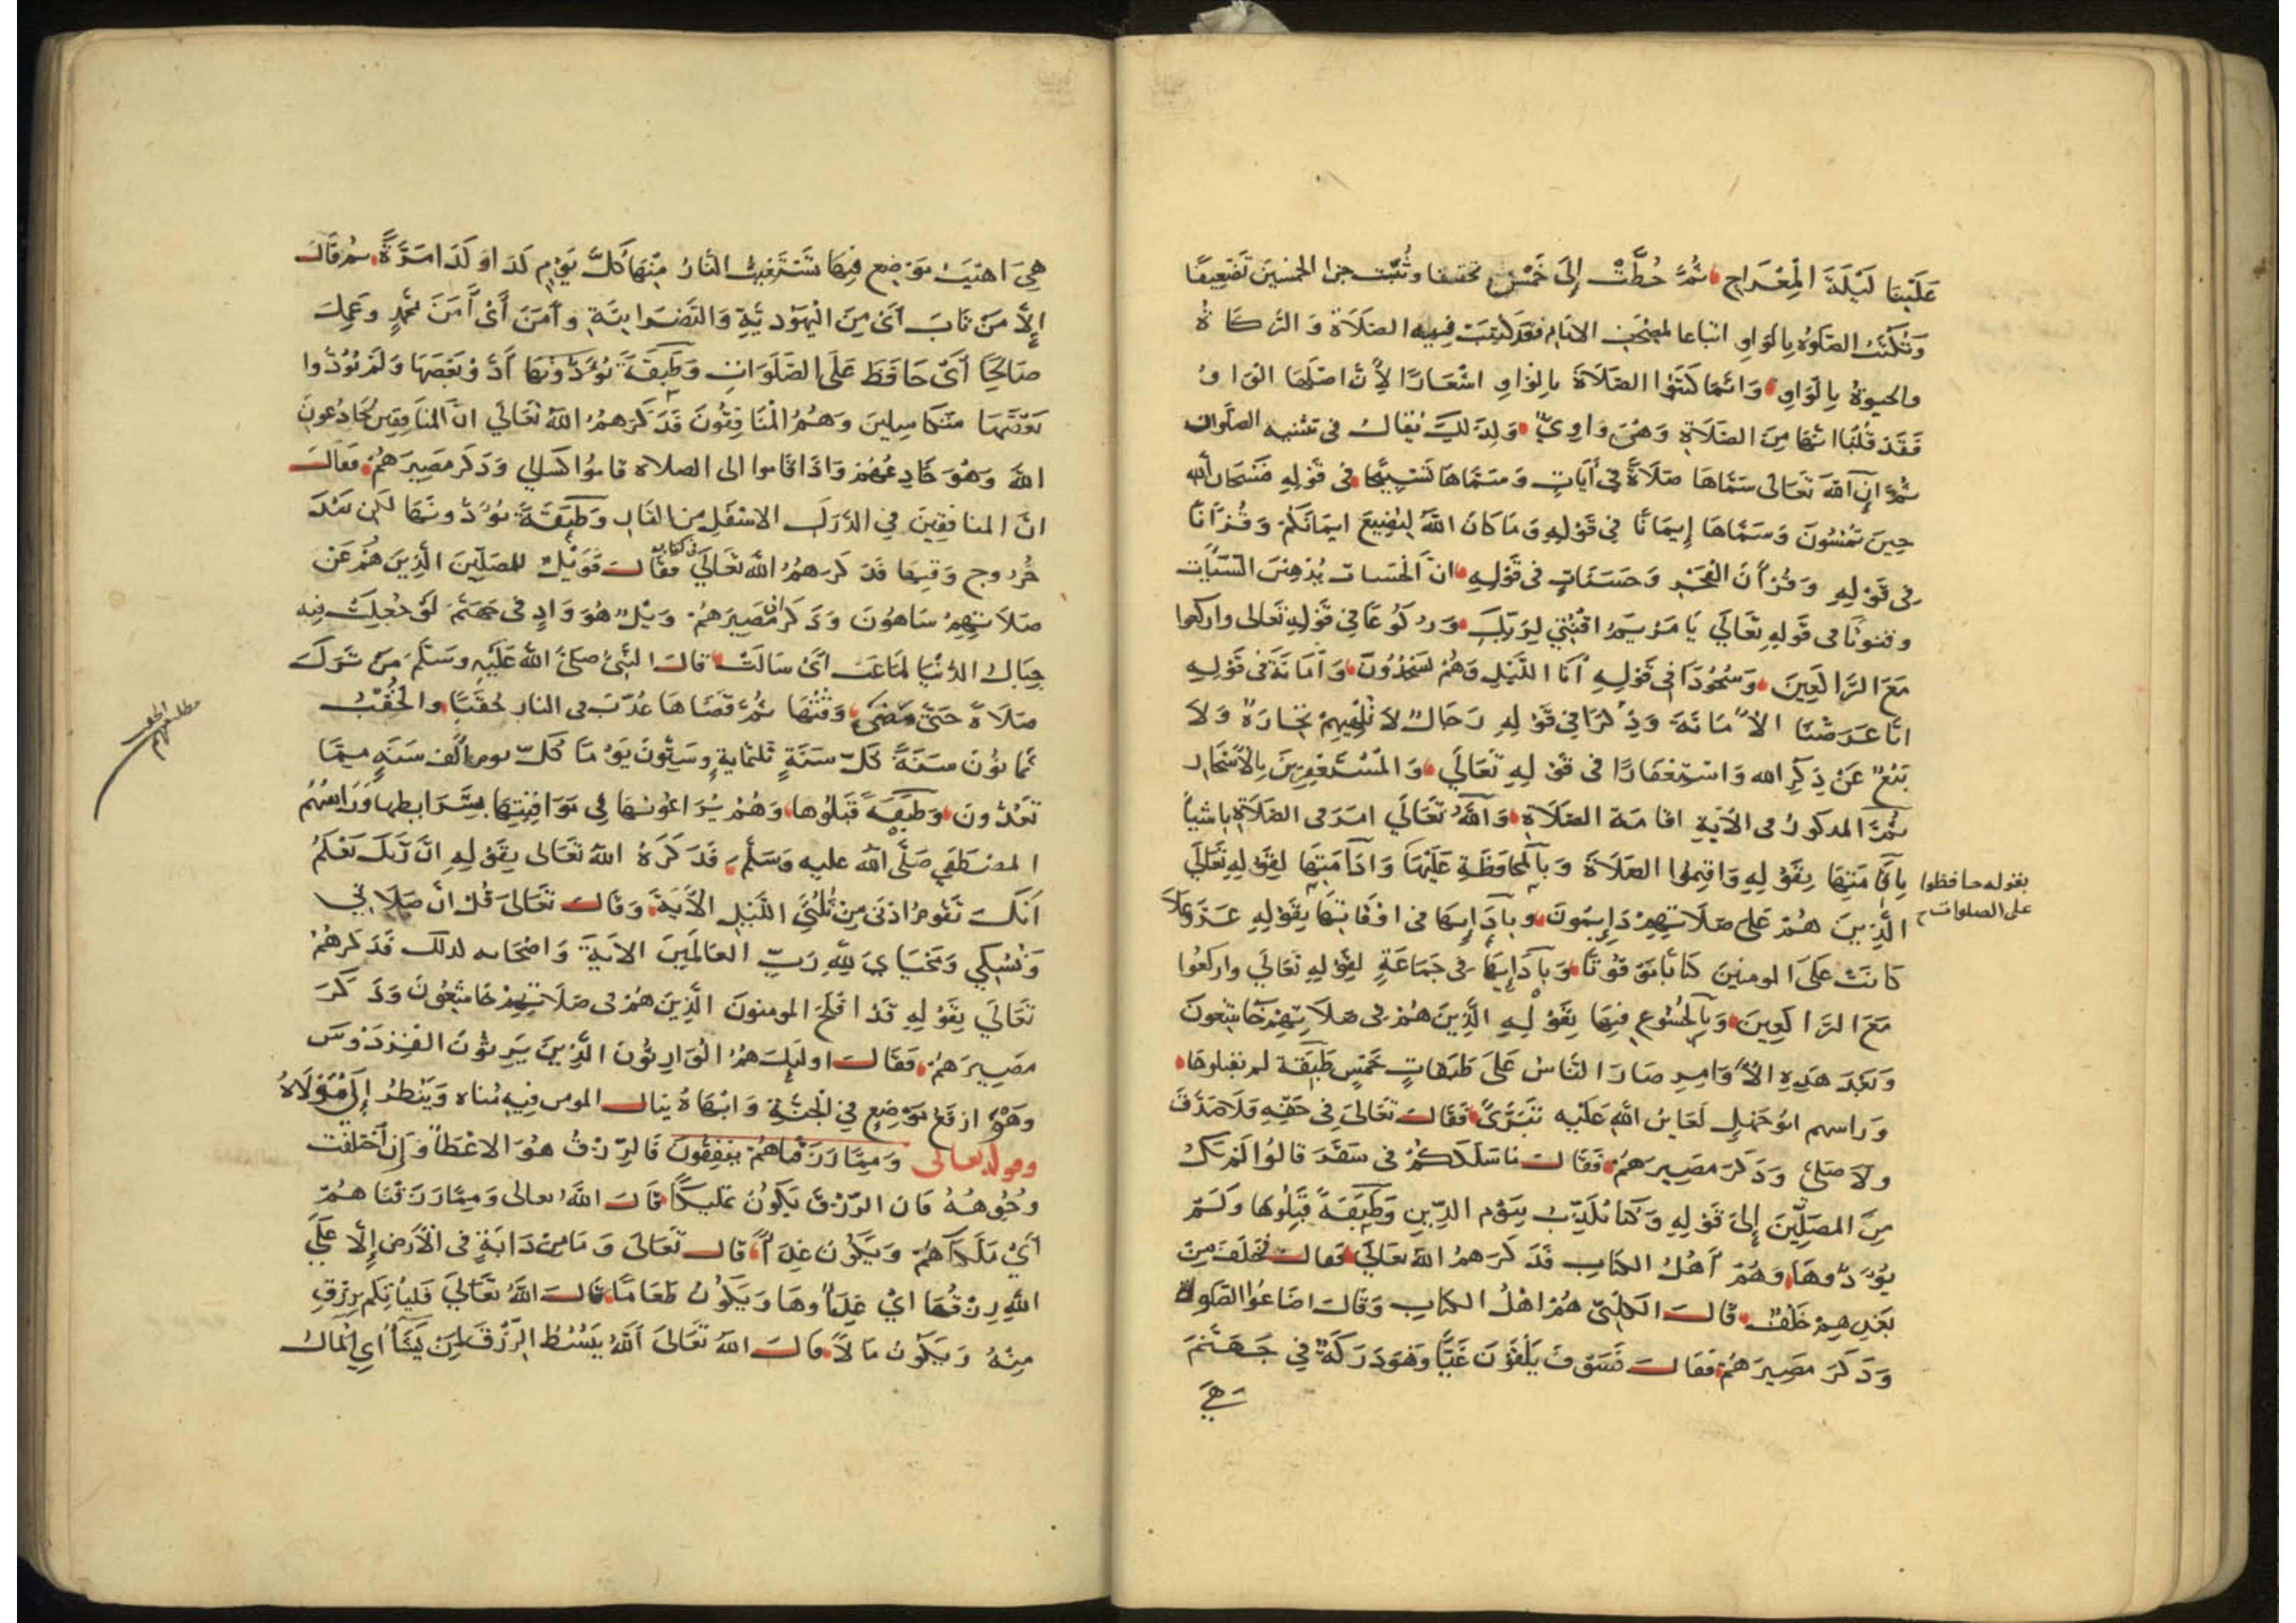 علينا ليلة المعراج ثم حطت إلى خمس تخفيفا وثبت جزا الخمسين تضعيفا
وتكتب الصلوة بالواو اتباعا لمصحف الامام فقد كتبت فيه الصلاة والزكاة
والحيوة بالواو وانما كتبوا الصلاة بالواو اشعارا لأن اصلها الواو
فقد قلنا انها من الصلاة وهي واوي ولذلك يقال في تثنيه الصلوان
ثم إن الله تعالى سماها صلاة في آيات وسماها تسبيحا في قوله فسبحان الله
حين تمسون وسماها إيمانا في قوله وما كان الله ليضيع ايمانكم وقرآنا
في قوله وقرآن الفجر وحسنات في قوله ان الحسنات يذهبن السيات
وقنوتا في قوله تعالي يا مريم اقنتي لربك وركوعا في قوله تعالى واركعوا
مع الراكعين وسجودا في قوله آنا الليل وهم يسجدون وأمانة في قوله
انا عرضنا الأمانة وذكرا في قوله رجال لا تلهيهم تجارة ولا
بيع عن ذكر الله واستغفارا في قوله تعالي والمستغفرين بالأسحار
ثم المدكور في الآية اقامة الصلاة والله تعالي امر في الصلاة باشيأ
بإقامتها بقوله واقيموا الصلاة وبالمحافظة عليها وادامتها لقوله تعالي
بقوله حافظوا
على الصلوات
الذين هم على صلاتهم دايمون وبآدايها في اوقاتها بقوله عز وعلا
كانت على المومنين كتابا موقوتا وبآدايها في جماعة لقوله تعالي واركعوا
مع الراكعين وبالخشوع فيها بقوله الذين هم في صلاتهم خاشعون
وبعد هذه الأوامر صار الناس على طبقات خمس طبقة لم يقبلوها
وراسهم ابو جهل لعاين الله عليه فقالت تعالى في حقه فلا صدق
ولا صلى وذكر مصيرهم فقالت ما سلككم في سقر قالوا لم نك
من المصلين إلى قوله وكنا نكذب بيوم الدين وطبقة قبلوها ولم
يؤدوها وهم أهل الكتاب قد ذكرهم الله تعالي فقال فخلف من
بعدهم خلف قال الكلبي هم اهل الكتاب وقال اضاعوا الصلوة
وذكر مصيرهم فقال فسوف يلقون غيا وهو دركة في جهنم
هي
هي اهيب موضع فيها تستغيث النار منها كل يوم كذا وكذا مرة ثم قال
إلا من تاب أى من اليهودية والنصرانية وآمن أى آمن بمحمد وعمل
صالحا أى حافظ على الصلوات وطبقة يؤدونها أو بعضها ولم يؤدوا
بعضها متكاسلين وهم المنافقون قد ذكرهم الله تعالي ان المنافقين يخادعون
الله وهو خادعهم واذا قاموا الى الصلاة قاموا كسالي وذكر مصيرهم فقال
ان المنافقين في الدرك الاسفل من النار وطبقة يؤدونها لكن بعد
خروج وقتها قد ذكرهم الله تعالي في كتابه فقال فويل للمصلين الذين هم عن
صلاتهم ساهون وذكر ان مصيرهم ويل هو واد في جهنم لو جعلت فيه
جبال الدنيا لماعت أى سالت قال النبي صلى الله عليه وسلم من ترك
صلاة حتى مضى وقتها ثم قضاها عذب في النار حقبا والحقب
ثمانون سنة كل سنة ثلثماية وستون يوما كل يوم الف سنة مما
تعدون وطبقة قبلوها وهم يراعونها في مواقيتها بشرايطها وراسهم
المصطفى صلى الله عليه وسلم قد ذكره الله تعالى بقوله ان ربك يعلم
أنك تقوم ادنى من ثلثي الليل الآية وقال تعالى قل ان صلاتي
ونسكي ومحياي لله رب العالمين الآية واصحابه لذلك قد ذكرهم
تعالي بقوله قد افلح المومنون الذين هم في صلاتهم خاشعون وذكر
مصيرهم فقال اوليك هم الوارثون الذين يرثون الفردوس
وهو ارفع موضع في الجنة وابهاه ينال المومن فيه مناه وينظر إلى مولاه
وقوله تعالى ومما رزقناهم ينفقون فالرزق هو الاعطأ وإن اختلفت
وجوهه فان الرزق يكون تمليكا قال الله تعالى ومما رزقناهم
أي ملكناهم ويكون غذأ قال تعالى وما من دابة في الأرض إلا على
الله رزقها اي غذاوها ويكون طعاما قال الله تعالي فلياتكم برزق
منه ويكون مالا قال الله تعالى الله يبسط الرزق لمن يشأ اي المال
مطلب
الحقب